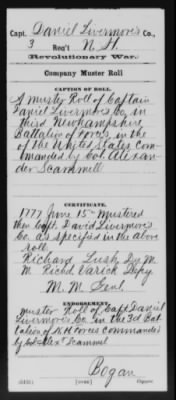 Capt. Daniel Livermore's Co.,
3 Reg't N.H.
(Revolutionary War.)
Company Muster Roll
CAPTION OF ROLL.
A Muster Roll of Captain
Daniel Livermore's Co. in
third Newhampshire
Battalion of Forces, in the
of the United States com-
manded by Col. Alexan-
der Scammell
CERTIFICATE.
1777 June 15th Mustered
then Capt. David Livermore's
Co. as specified in the above
roll.
Richard Lush Dy M.
M Richd Varick Depy
M. M. Genl.
ENDORSEMENT.
Muster Roll of Capt Daniel
Livermore's Co. in the 3d Bat-
talion of N.H. Forces commanded
by Alexr Scammel
Bogan
Copyist.